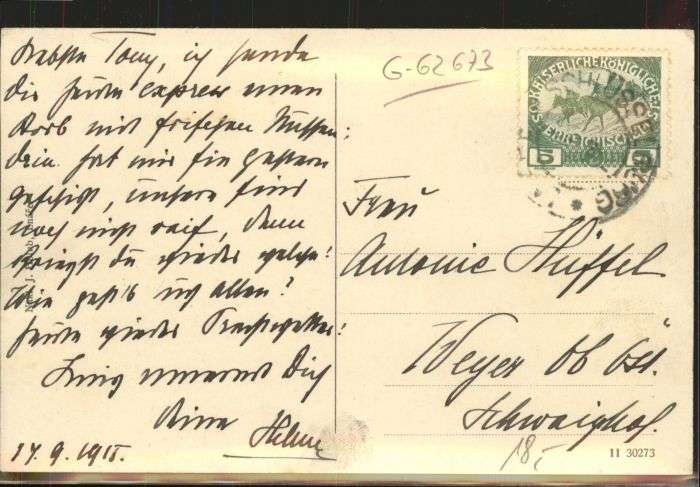 G-62673
Liebste Tony, ich sende
Dir heute express einen
Korb mit frischen Nüssen;
Dein hat mir sie gestern
geschickt, unsere sind
noch nicht reif, dann
kriegst du wieder welche!
Wie geht's Euch allen?
Heute wieder Prachtwetter!
Innig umarmt Dich
Deine
Helene
17.9.1915.
KAISERLICHE KÖNIGLICHE
ÖSTERREICHISCHE
5 5
Frau
Antonie Hüffel
Weyer Ob Öst.
Schwaighof.
18,-
11 30273